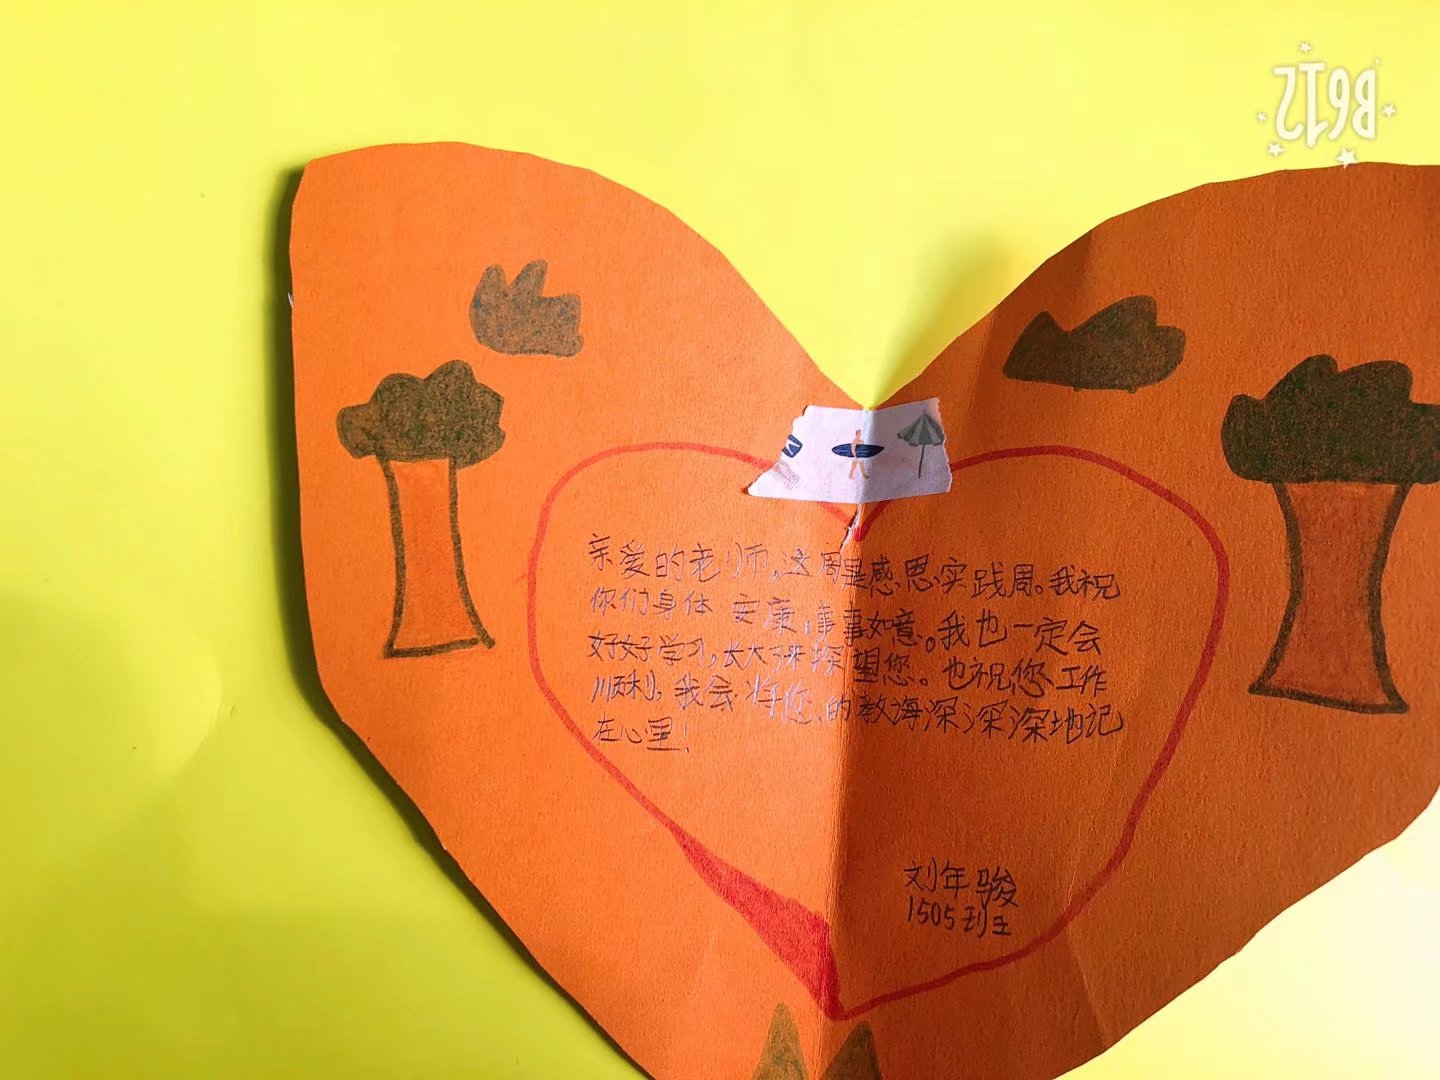 B612
亲爱的老师,这周是感恩实践周。我祝
你们身体安康,事事如意。我也一定会
好好学习,长大了来探望您。也祝您工作
顺利,我会将您的教海深深深地记
在心里!
刘年骏
1505班